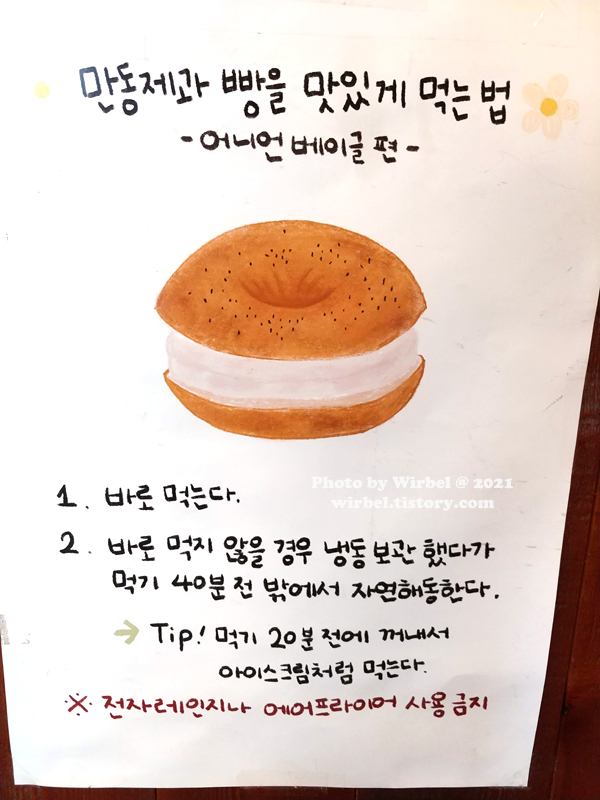 만동제과 빵을 맛있게 먹는 법
- 어니언 베이글 편 -
Photo by Wirbel @ 2021
wirbel.tistory.com
1. 바로 먹는다.
2. 바로 먹지 않을 경우 냉동 보관 했다가
먹기 40분 전 밖에서 자연해동한다.
→ Tip! 먹기 20분 전에 꺼내서
아이스크림처럼 먹는다.
※ 전자레인지나 에어프라이어 사용 금지